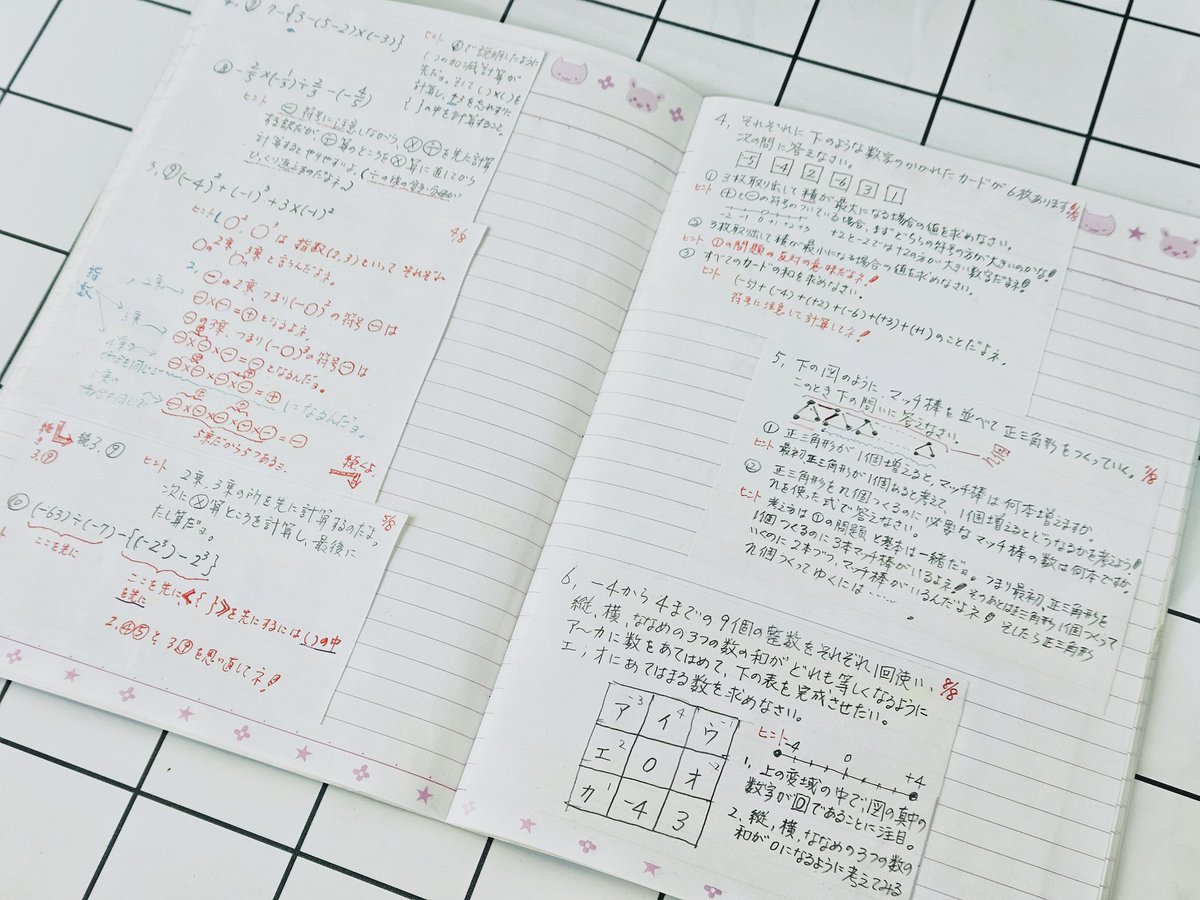 7-{3-(5-2)×(-3)}
ヒント ④で説明したように
( )の加減計算が
先だヨ。そして( )×( )を
計算し、
{ }の中を計算すること。
⑧ -2/5×(-1/3)÷2/3-(-4/5)
ヒント ⊖符号に注意しながら、⊗⊕を先に計算
計算するとやりやすいよ。
3, ㋒ (-4)²+(-1)³+3×(-1)²
4/8
ヒント 1, ○²、○³は指数(2,3)といって それぞれ
○の2乗、3乗と言うんだよネ。
指数
2, ⊖の2乗、つまり(-○)²の符号⊖は
⊖×⊖=⊕となるよネ。
⊖の3乗、つまり(-○)³の符号⊖は
⊖×⊖×⊖=⊖となるんだヨ。
⊖×⊖×⊖×⊖=⊕
になるんだヨ。
⊖×⊖×⊖×⊖×⊖=⊖
5乗だから5つあるヨ。
続くよ
続3.㋒
5/8
ヒント 2乗、3乗の所を先に計算するのだよ。
次に⊗算ところを計算し、最後に
たし算だヨ。
(-63)÷(-7)-{(-2³)-2³}
ここを先に
ここを先に、《{ }》を先にするには( )の中
を先に
2,④⑤と3㋒を思い返してネ!
4, それぞれに下のような数字のかかれたカードが6枚あります。
6/8
次の問に答えなさい。
-5 -4 2 -6 3 1
① 3枚取り出して積が最大になる場合の値を求めなさい。
ヒント ⊕と⊖の符号のついている場合、まずどちらの符号の方が大きいのかな!
-2 -1 0 +1 +2 +3 +2と-2では+2の方が大きい数字だよネ!
② 3枚取り出して積が最小になる場合の値を求めなさい。
ヒント ①の問題の反対の意味だよネ!
③ すべてのカードの和を求めなさい。
ヒント (-5)+(-4)+(+2)+(-6)+(+3)+(+1)のことだよネ。
符号に注意して計算してネ!
5, 下の図のように、マッチ棒を並べて正三角形をつくっていく。
7/8
このとき下の問いに答えなさい。
n個
① 正三角形が1個増えると、マッチ棒は何本増えますか。
ヒント 最初正三角形が1個あると考えて、1個増えるとどうなるかを考えよう!
② 正三角形をn個つくるのに必要なマッチ棒の数は何本ですか。
nを使った式で答えなさい。
ヒント 考え方は①の問題と基本は一緒だヨ。つまり最初、正三角形を
1個つくるのに3本マッチ棒がいるよネ! そのあとは正三角形1個つくって
いくのに2本づつ、マッチ棒がいるんだよネ! そしたら正三角形
n個つくってゆくには……
6, -4から4までの9個の整数をそれぞれ1回使い、
8/8
縦、横、ななめの3つの数の和がどれも等しくなるように
ア〜カに数をあてはめて、下の表を完成させたい。
エ,オにあてはまる数を求めなさい。
ア -3 イ 4 ウ -1
エ 2 0 オ -2
カ 1 -4 3
ヒント -4 0 +4
1, 上の変域の中で、図の真中の
数字が0であることに注目。
2, 縦,横,ななめの3つの数の
和が0になるように考えてみる